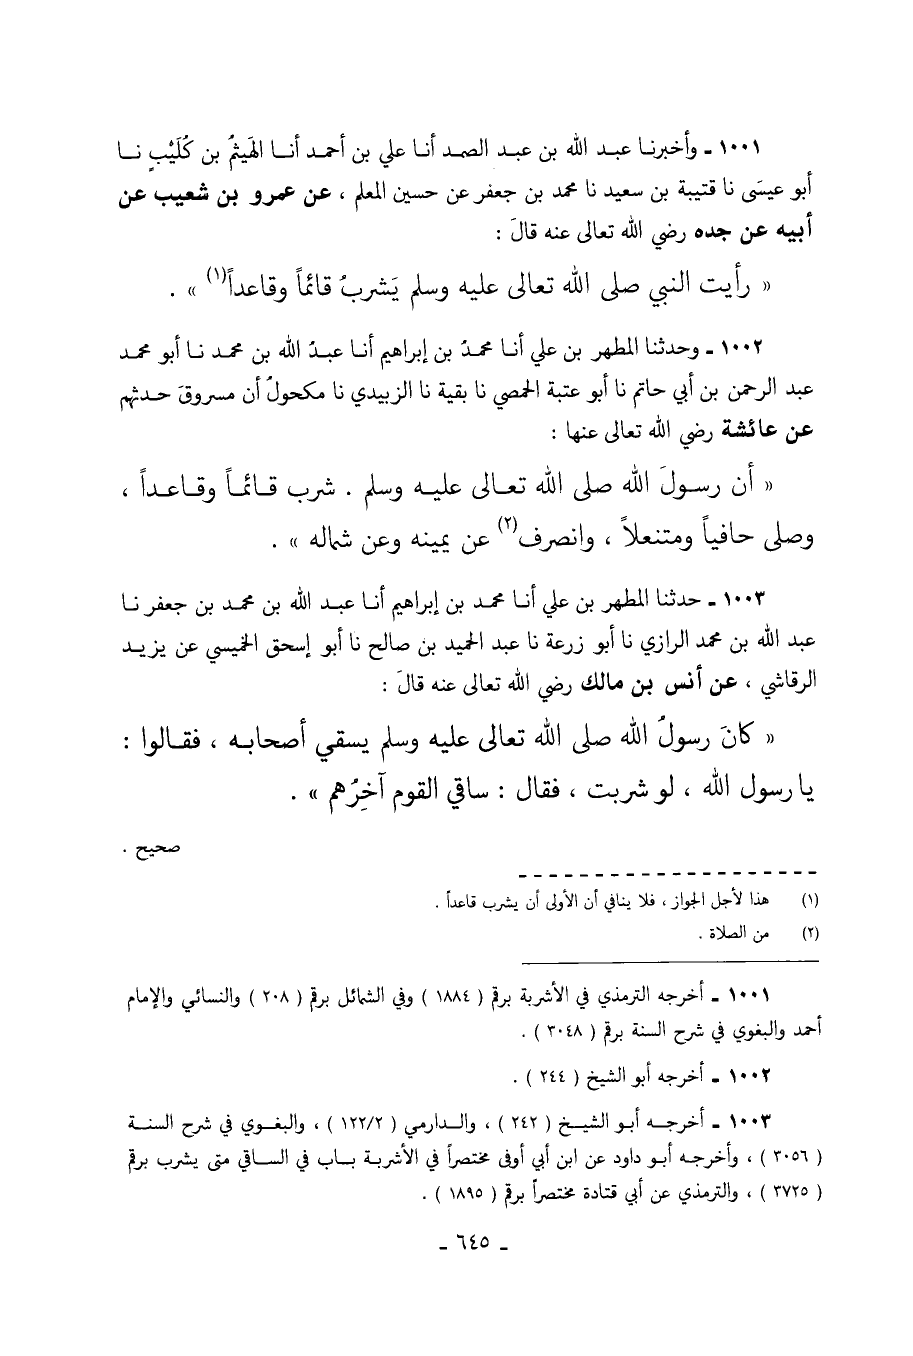 ١٠٠١ ـ وأخبرنـا عبـد الله بن عبـد الصمـد أنـا علي بن أحمـد أنـا الهَيثمُ بن كُلَيْبٍ نـا
أبو عيسَى نا قتيبة بن سعيد نا محمد بن جعفر عن حسين المعلم ، عن عمرو بن شعيب عن
أبيه عن جده رضي الله تعالى عنه قالَ :
« رأيت النبي صلى الله تعالى عليه وسلم يَشربُ قائماً وقاعداً(١) » .
١٠٠٢ ـ وحدثنا المطهر بن علي أنـا محمدُ بن إبراهيم أنـا عبدُ الله بن محمـد نـا أبو محمـد
عبد الرحمن بن أبي حاتم نا أبو عتبة الحمصي نا بقية نا الزبيدي نا مكحولُ أن مسروقَ حـدثهم
عن عائشة رضي الله تعالى عنها :
« أن رسـولَ الله صلى الله تعـالى عليـه وسلم . شرب قـائمـاً وقـاعـداً ،
وصلى حافياً ومتنعلاً ، وانصرف(٢) عن يمينه وعن شماله » .
١٠٠٣ ـ حدثنا المطهر بن علي أنـا محمـد بن إبراهيم أنـا عبـد الله بن محمـد بن جعفر نـا
عبد الله بن محمد الرازي نا أبو زرعة نا عبد الحميد بن صالح نا أبو إسحق الخميسي عن يزيـد
الرقاشي ، عن أنس بن مالك رضي الله تعالى عنه قالَ :
« كانَ رسولُ الله صلى الله تعالى عليه وسلم يسقي أصحابـه ، فقـالوا :
يا رسول الله ، لو شربت ، فقال : ساقي القوم آخِرُهم » .
صحيح .
(١) هذا لأجل الجواز ، فلا ينافي أن الأولى أن يشرب قاعداً .
(٢) من الصلاة .
١٠٠١ ـ أخرجه الترمذي في الأشربة برقم ( ١٨٨٤ ) وفي الشمائل برقم ( ٢٠٨ ) والنسائي والإمام
أحمد والبغوي في شرح السنة برقم ( ٣٠٤٨ ) .
١٠٠٢ ـ أخرجه أبو الشيخ ( ٢٤٤ ) .
١٠٠٣ ـ أخرجـه أبـو الشيـخ ( ٢٤٢ ) ، والـدارمي ( ١٢٢/٢ ) ، والبغـوي في شرح السنـة
( ٣٠٥٦ ) ، وأخرجـه أبـو داود عن ابن أبي أوفى مختصراً في الأشربـة بـاب في السـاقي متى يشرب برقم
( ٣٧٢٥ ) ، والترمذي عن أبي قتادة مختصراً برقم ( ١٨٩٥ ) .
ـ ٦٤٥ ـ